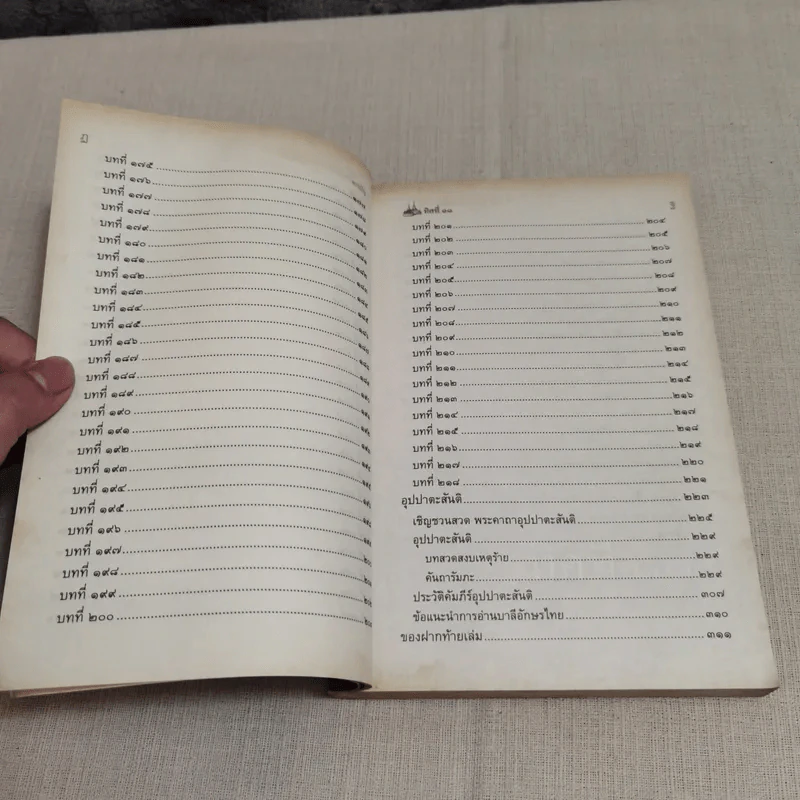 บทที่ ๑๗๕
บทที่ ๑๗๖
บทที่ ๑๗๗
บทที่ ๑๗๘
บทที่ ๑๗๙
บทที่ ๑๘๐
บทที่ ๑๘๑
บทที่ ๑๘๒
บทที่ ๑๘๓
บทที่ ๑๘๔
บทที่ ๑๘๕
บทที่ ๑๘๖
บทที่ ๑๘๗
บทที่ ๑๘๘
บทที่ ๑๘๙
บทที่ ๑๙๐
บทที่ ๑๙๑
บทที่ ๑๙๒
บทที่ ๑๙๓
บทที่ ๑๙๔
บทที่ ๑๙๕
บทที่ ๑๙๖
บทที่ ๑๙๗
บทที่ ๑๙๘
บทที่ ๑๙๙
บทที่ ๒๐๐
ทิศที่ ๑๑
บทที่ ๒๐๑ ๒๐๔
บทที่ ๒๐๒ ๒๐๕
บทที่ ๒๐๓ ๒๐๖
บทที่ ๒๐๔ ๒๐๗
บทที่ ๒๐๕ ๒๐๘
บทที่ ๒๐๖ ๒๐๙
บทที่ ๒๐๗ ๒๑๐
บทที่ ๒๐๘ ๒๑๑
บทที่ ๒๐๙ ๒๑๒
บทที่ ๒๑๐ ๒๑๓
บทที่ ๒๑๑ ๒๑๔
บทที่ ๒๑๒ ๒๑๕
บทที่ ๒๑๓ ๒๑๖
บทที่ ๒๑๔ ๒๑๗
บทที่ ๒๑๕ ๒๑๘
บทที่ ๒๑๖ ๒๑๙
บทที่ ๒๑๗ ๒๒๐
บทที่ ๒๑๘ ๒๒๑
อุปปาตะสันติ ๒๒๓
เชิญชวนสวด พระคาถาอุปปาตะสันติ ๒๒๕
อุปปาตะสันติ ๒๒๙
บทสวดสงบเหตุร้าย ๒๒๙
คันถารัมภะ ๒๒๙
ประวัติคัมภีร์อุปปาตะสันติ ๓๐๗
ข้อแนะนำการอ่านบาลีอักษรไทย ๓๑๐
ของฝากท้ายเล่ม ๓๑๑